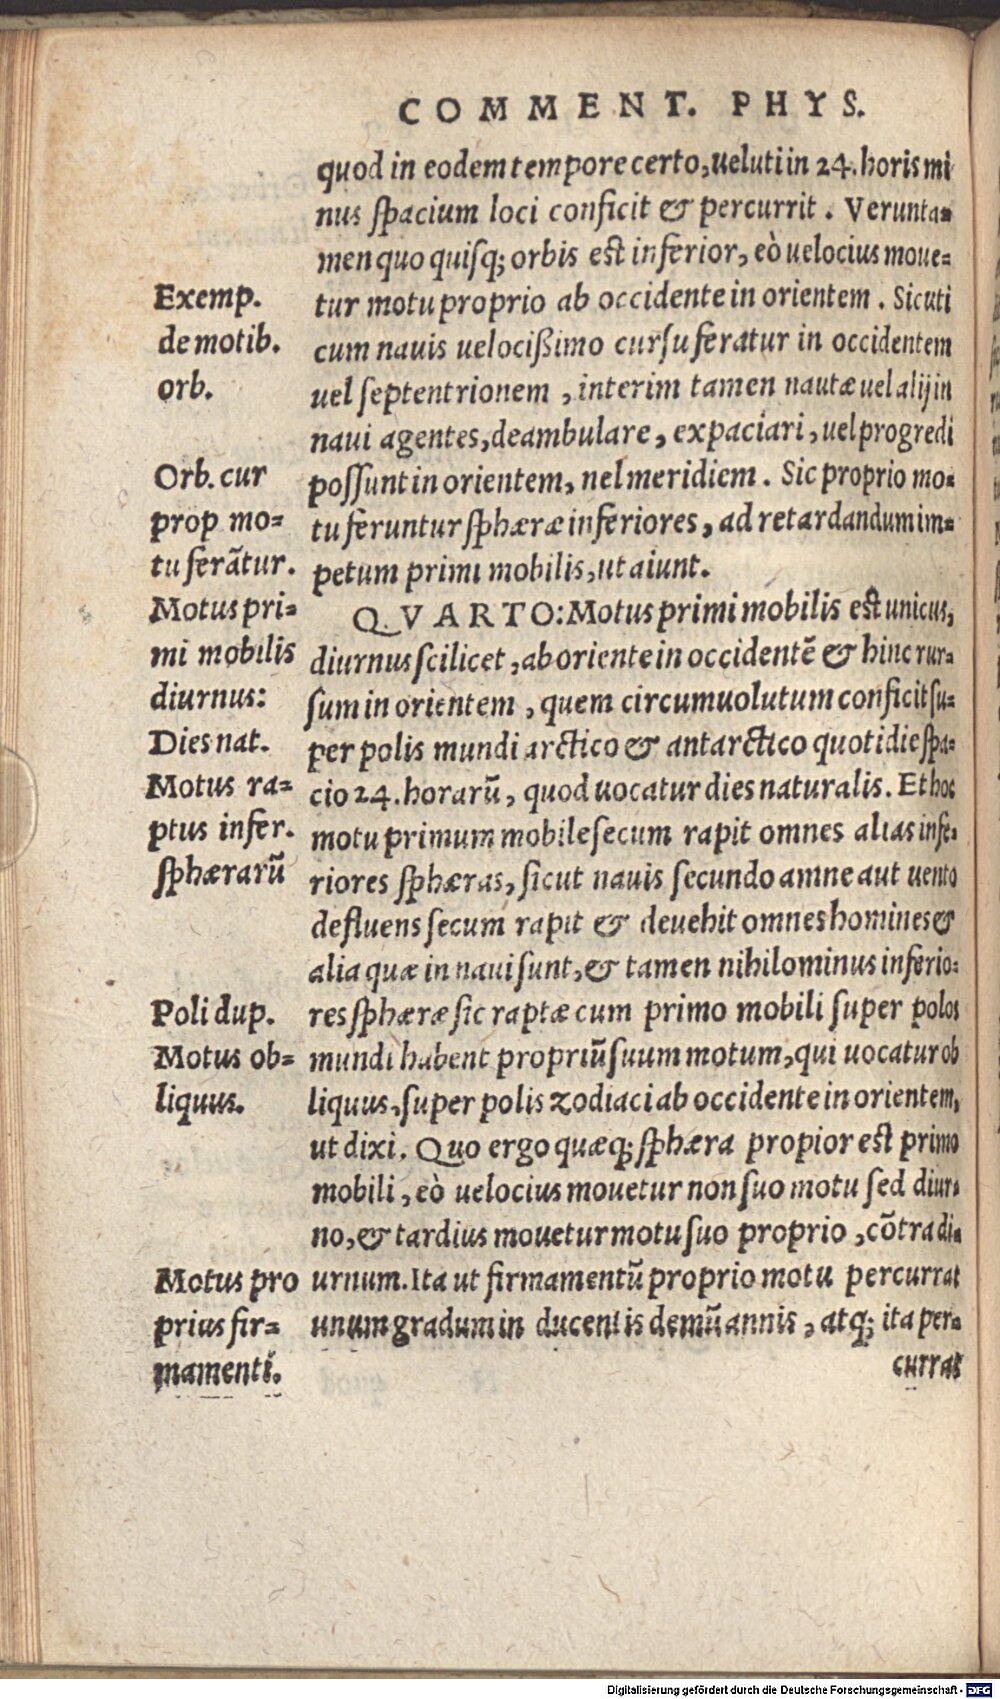 COMMENT. PHYS.
quod in eodem tempore certo, ueluti in 24. horis mi
nus spacium loci conficit & percurrit. Verunta=
men quo quisq; orbis est inferior, eò uelocius moue=
Exemp.
de motib.
orb.
tur motu proprio ab occidente in orientem. Sicuti
cum nauis uelocißimo cursu feratur in occidentem
uel septentrionem, interim tamen nautæ uel alij in
naui agentes, deambulare, expaciari, uel progredi
Orb. cur
prop mo=
tu ferãtur.
possunt in orientem, nel meridiem. Sic proprio mo=
tu feruntur sphæræ inferiores, ad retardandum im=
petum primi mobilis, ut aiunt.
Motus pri=
mi mobilis
diurnus:
Dies nat.
Motus ra=
ptus infer.
sphærarũ
QVARTO: Motus primi mobilis est unicus,
diurnus scilicet, ab oriente in occidentẽ & hinc rur=
sum in orientem, quem circumuolutum conficit su=
per polis mundi arctico & antarctico quotidie spa=
cio 24. horarũ, quod uocatur dies naturalis. Et hoc
motu primum mobile secum rapit omnes alias infe=
riores sphæras, sicut nauis secundo amne aut uento
defluens secum rapit & deuehit omnes homines &
alia quæ in naui sunt, & tamen nihilominus inferio=
Poli dup.
Motus ob=
liquus.
res sphæræ sic raptæ cum primo mobili super polos
mundi habent propriũ suum motum, qui uocatur ob
liquus, super polis zodiaci ab occidente in orientem,
ut dixi. Quo ergo quæq; sphæra propior est primo
mobili, eò uelocius mouetur non suo motu sed diur=
no, & tardius mouetur motu suo proprio, cõtra di=
Motus pro
prius fir=
mamenti.
urnum. Ita ut firmamentũ proprio motu percurrat
unum gradum in ducentis demũ annis, atq; ita per=
currat
Digitalisierung gefördert durch die Deutsche Forschungsgemeinschaft - DFG